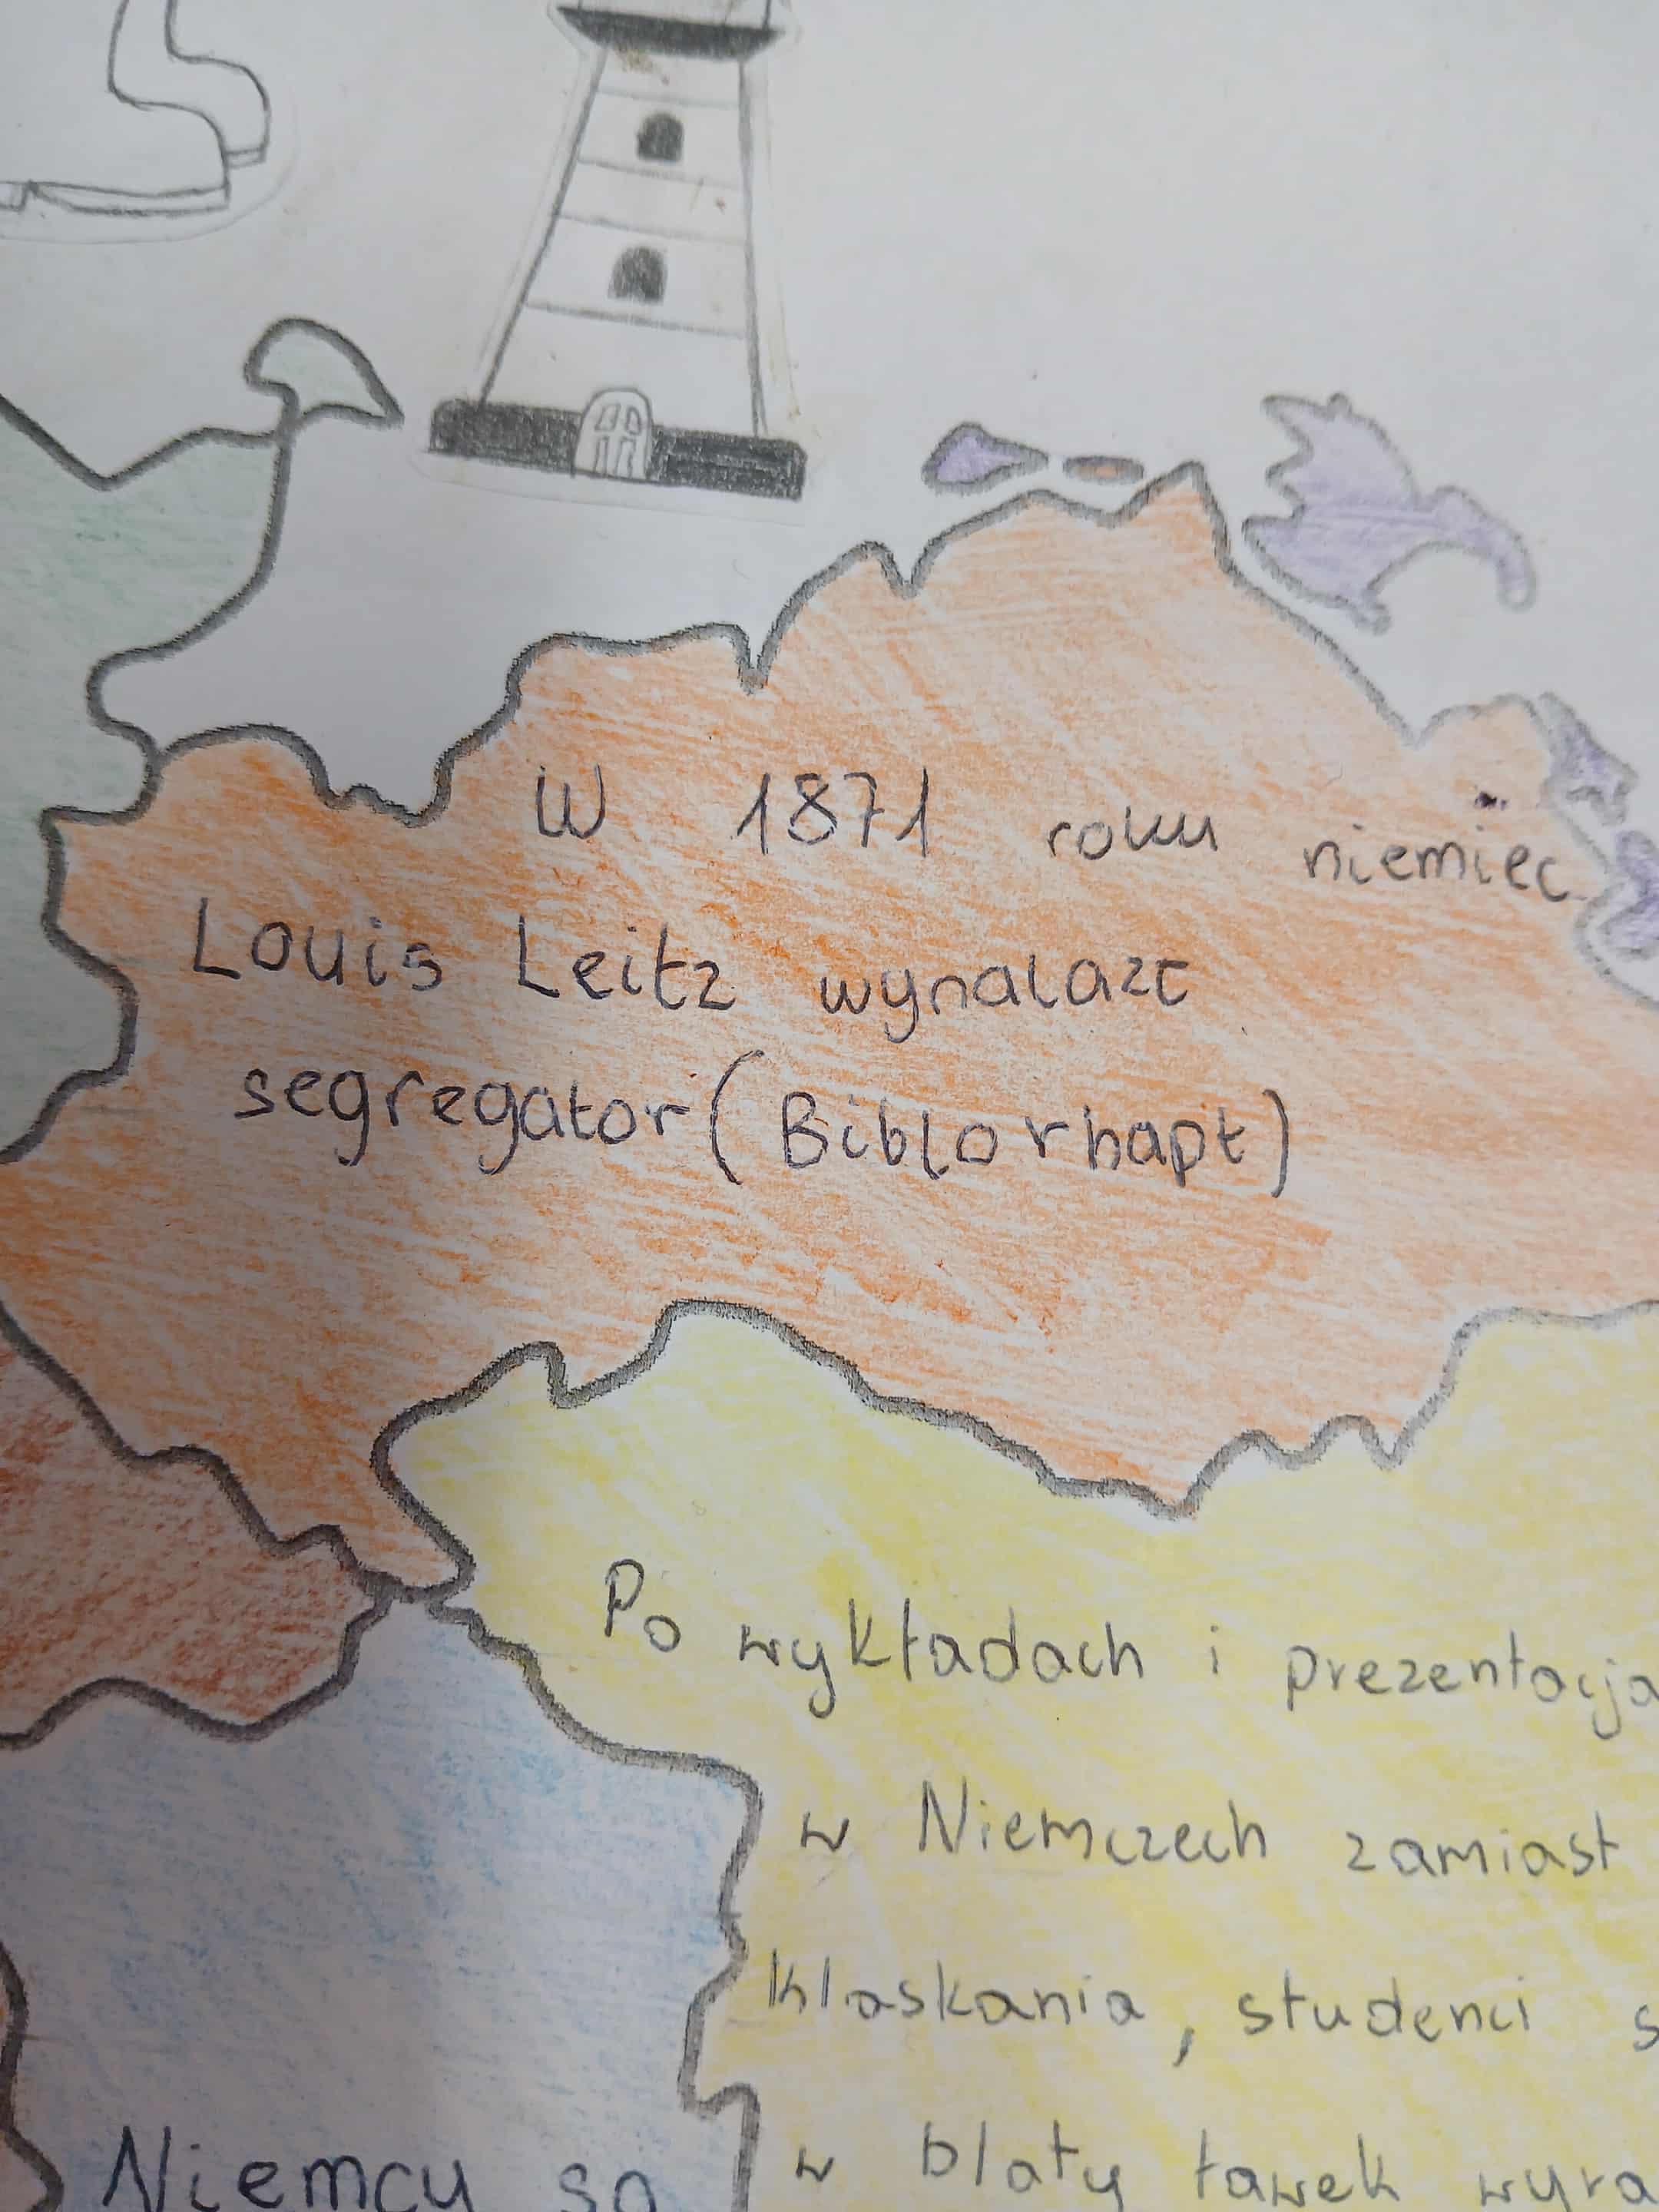 W 1871 roku niemiec
Louis Leitz wynalazł
segregator (Biblorhapt)
Po wykładach i prezentacja
w Niemczech zamiast
klaskania, studenci s
w blaty ławek wyra
Niemcy są